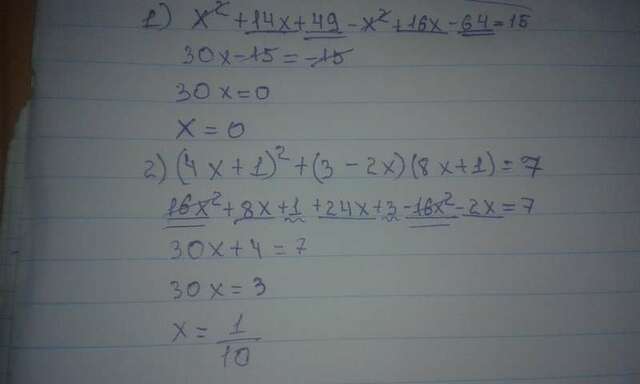 1) x² + 14x + 49 - x² + 16x - 64 = 15
30x - 15 = -15
30x = 0
x = 0
2) (4x + 1)² + (3 - 2x)(8x + 1) = 7
16x² + 8x + 1 + 24x + 3 - 16x² - 2x = 7
30x + 4 = 7
30x = 3
x = 1/10